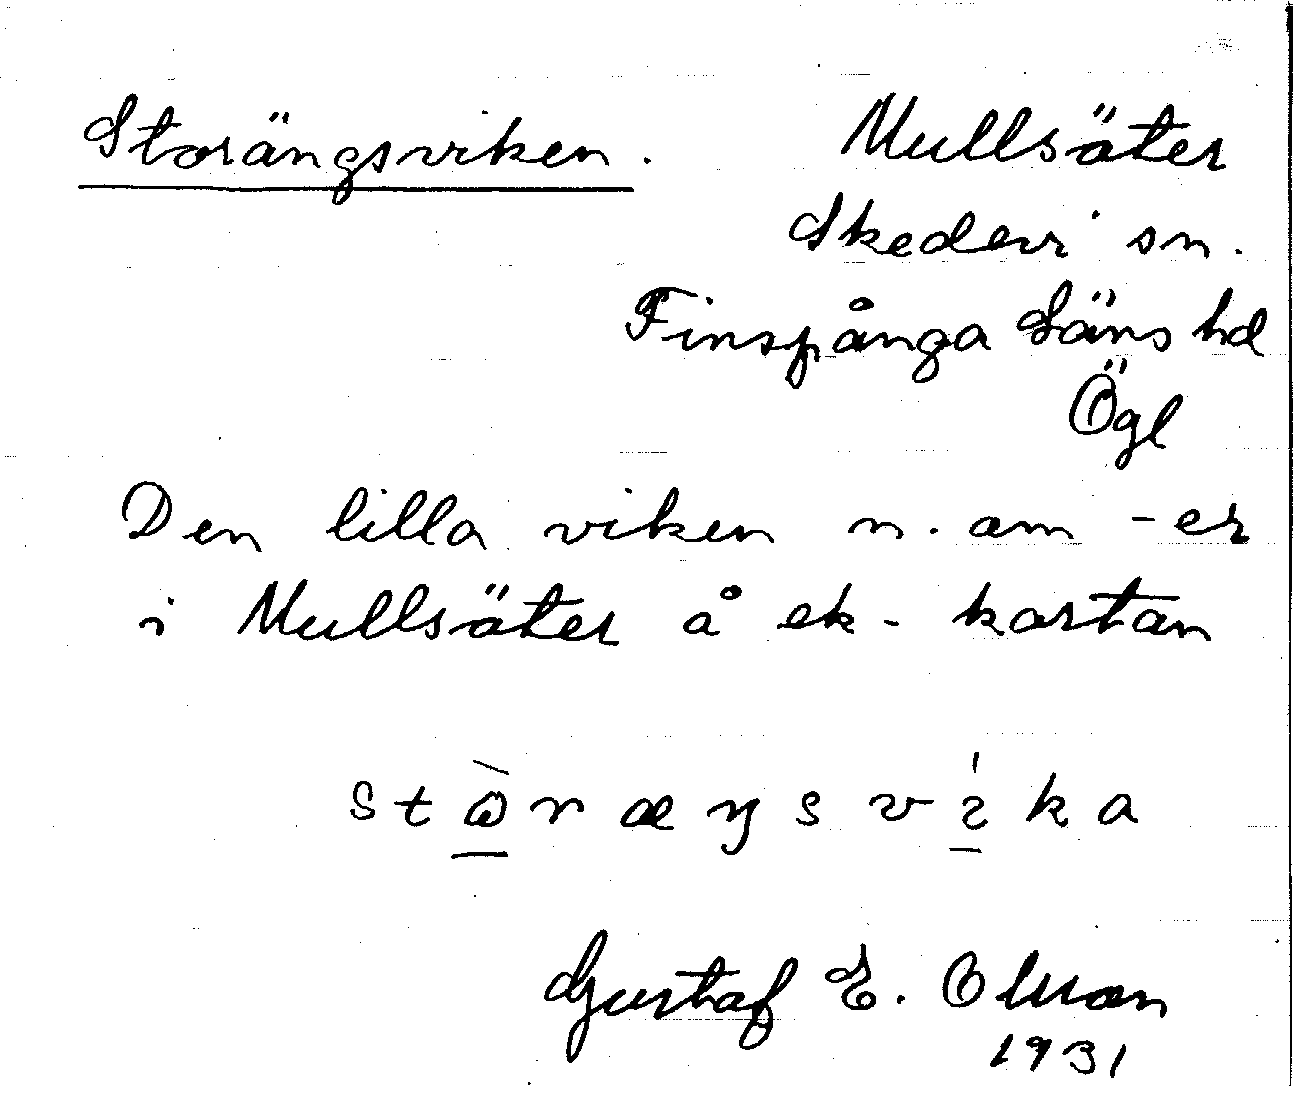 Storängsviken.
Mullsäter
Skedevi sn.
Finspånga Läns hd
Ögl
Den lilla viken n. om -er
i Mullsäter å ek-kartan
stɷ̀ræŋsvíka
Gustaf E. Olsson
1931